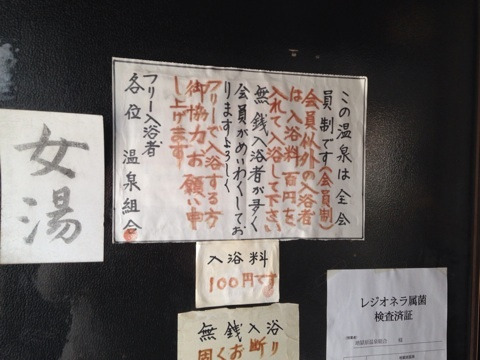 この温泉は全会
員制です(会員制)
会員以外の入浴者
は入浴料百円を
入れて入浴して下さい
無銭入浴者が多く
会員がめいわくしてお
りますよろしく
フリーで入浴する方
御協力お願い申
し上げます
フリー入浴者
各位 温泉組合
女湯
入浴料
100円です
無銭入浴
固くお断り
レジオネラ属菌
検査済証